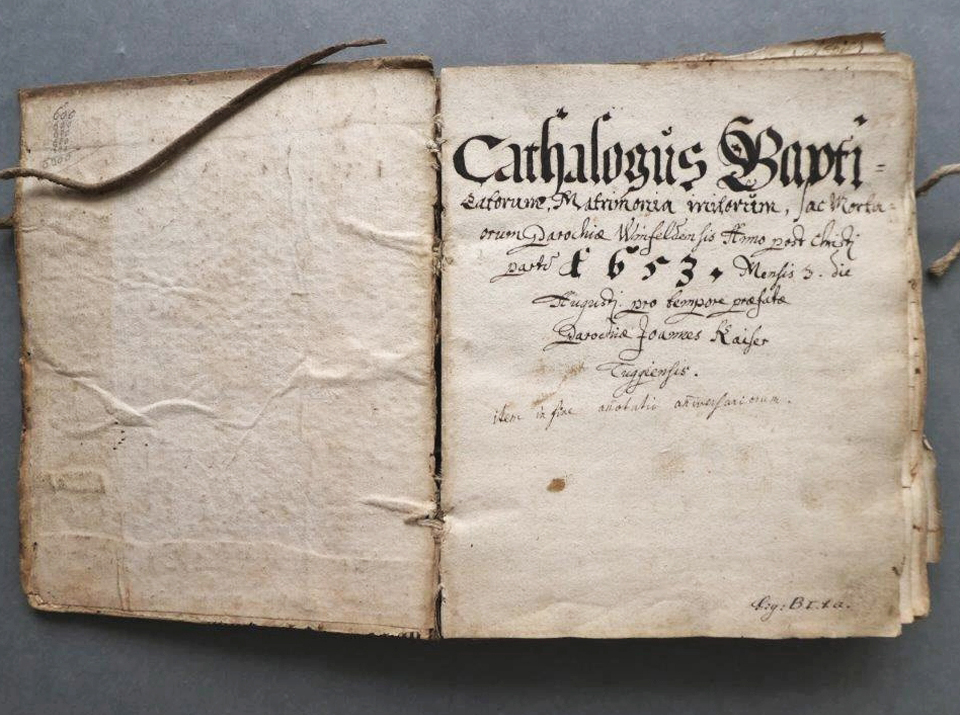 600
6000
Cathalogus Bapti=
zatorum, Matrimonia initorum, ac Mortu=
orum Parochiæ Winfeldensis Anno post Christi
partū 1653. Mensis 3. die
Augusti. pro tempore præfatæ
Parochiæ Joannes Kaiser
Tuggiensis.
item in fine annotatii anniversariorum.